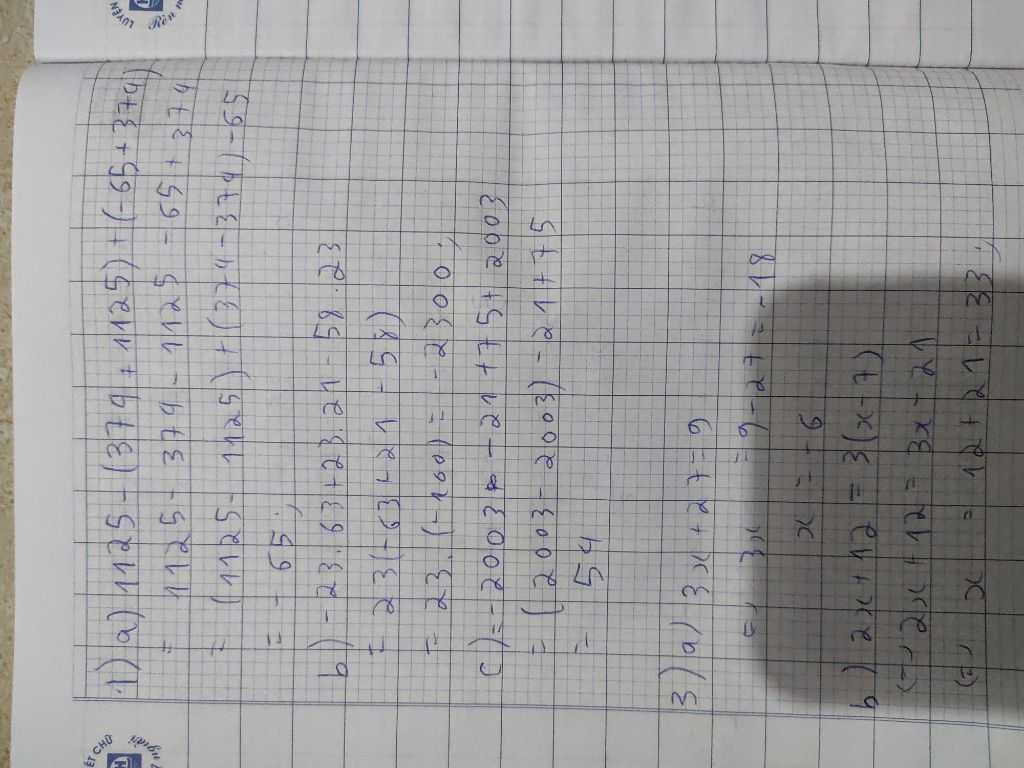 1) a) 1125 - (374 + 1125) + (-65 + 374)
= 1125 - 374 - 1125 - 65 + 374
= (1125 - 1125) + (374 - 374) - 65
= - 65;
b) - 23. 63 + 23. 21 - 58 . 23
= 23 (- 63 + 21 - 58)
= 23. (- 100) = - 2300;
c) = - 2003 - 21 + 75 + 2003
= (2003 - 2003) - 21 + 75
= 54
3) a) 3x + 27 = 9
=> 3x = 9 - 27 = - 18
x = - 6
b) 2x + 12 = 3(x - 7)
(=) 2x + 12 = 3x - 21
(=) x = 12 + 21 = 33;
LUYỆN
Rèn
ẾT CHỮ
người